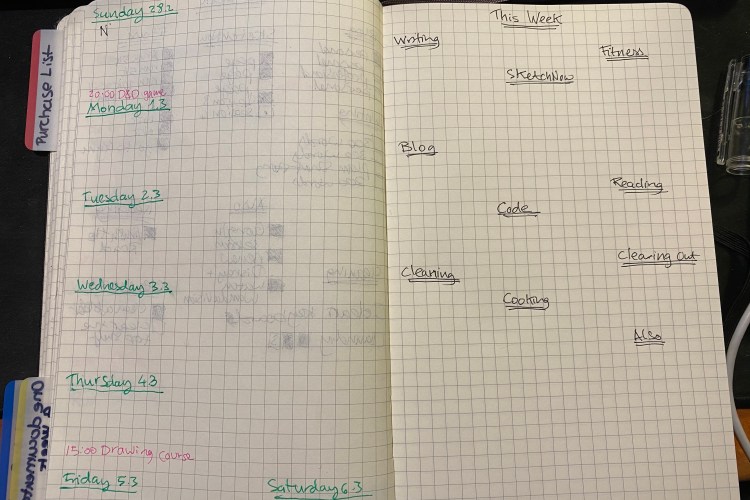 Sunday 28.2
N
20:00 D&D game
Monday 1.3
Tuesday 2.3
Wednesday 3.3
Thursday 4.3
15:00 Drawing Course
Friday 5.3
Saturday 6.3
This Week
Writing
Fitness
SketchNow
Blog
Reading
Code
Clearing Out
Cleaning
Cooking
Also
Purchase List